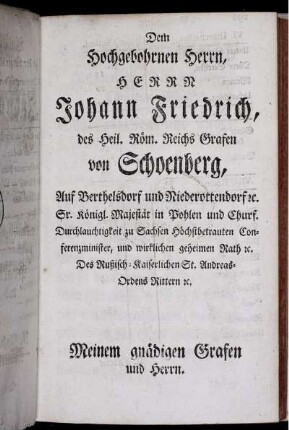 Dem
Hochgebohrnen Herrn,
HERRN
Johann Friedrich,
des Heil. Röm. Reichs Grafen
von Schoenberg,
Auf Berthelsdorf und Niederottendorf ꝛc.
Sr. Königl. Majestät in Pohlen und Churf.
Durchlauchtigkeit zu Sachsen Höchstbetrauten Con-
ferenzminister, und wirklichen geheimen Rath ꝛc.
Des Rußisch-Kaiserlichen St. Andreas-
Ordens Rittern ꝛc.
Meinem gnädigen Grafen
und Herrn.